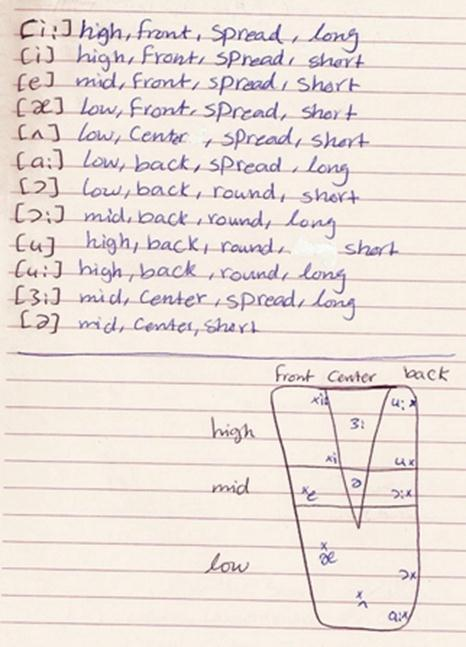 [i:] high, front, spread, long
[i] high, front, spread, short
[e] mid, front, spread, short
[æ] low, front, spread, short
[ʌ] low, center, spread, short
[a:] low, back, spread, long
[ɔ] low, back, round, short
[ɔ:] mid, back, round, long
[u] high, back, round, short
[u:] high, back, round, long
[3:] mid, center, spread, long
[ə] mid, center, short
front center back
xi: u:x
3:
high
xi ux
mid xe ə ɔ:x
x
æ
low ɔx
x
ʌ
a:x